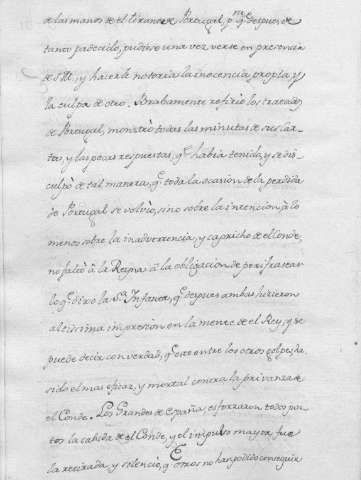 de las manos de el tirano de Portugal, pa. q. despues de
tanto padecido, pudiese una vez verse en presencia
de S.M. y hacerle notoria la inocencia propia, y
la culpa de otro. Brabamente refirio los trata
de Portugal, monstrò todas las minutas de sus car-
tas, y las pocas respuestas, q. habia tenido, y se dis-
culpò de tal manera, q. toda la ocasion de la perdida
de Portugal se volviò, sino sobre la intencion, à lo
menos sobre la inadvertencia, y capricho de el Conde,
no faltò à la Reyna à la obligacion de perifrasear
lo q. dixo la Sra. Infanta, q. despues ambas hicieron
altissima impresion en la mente de el Rey, y se
puede decir con verdad, q. este entre los otros golpes, ha
sido el mas eficaz, y mortal contra la privanza de
el Conde. Los Grandes de España, esforzaron todos jun-
tos la cahida de el Conde, y el impulso mayor, fue
la retirada, y silencio, q. otros no han podido conseguir